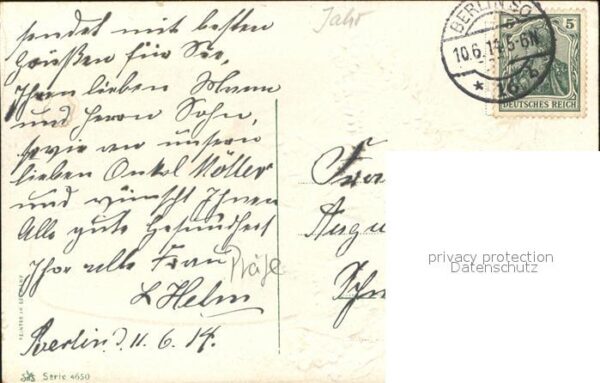 sendet mit besten
Grüßen für Sie,
Ihren lieben Mann
und Herrn Sohn,
sowie an unsern
lieben Onkel Möller
und wünscht Ihnen
Alle gute Gesundheit
Ihre alte Frau
L Helm
Berlin d. 11. 6. 14.
Jahr
Präge
BERLIN SO
10.6.14.5-6N
DEUTSCHES REICH
5
Frau
privacy protection
Datenschutz
Serie 4650